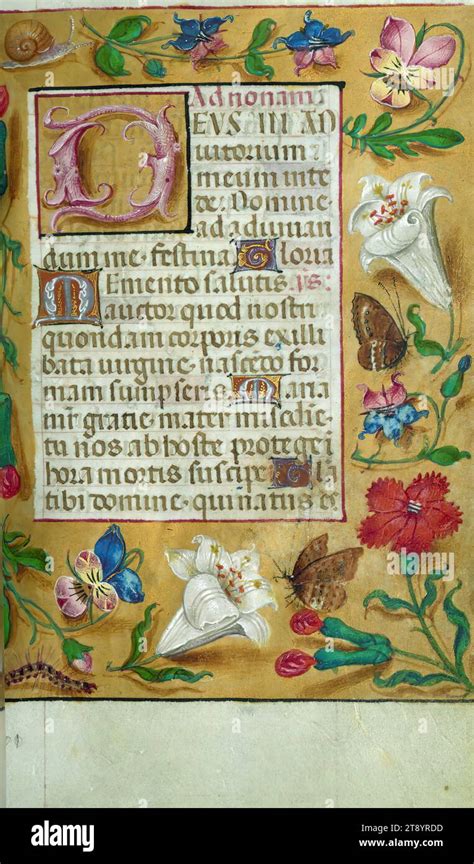 Ad nonam
EUS IN AD
iutorium
meum inte
de. Domine
ad adiuuan
dum me festina Gloria
Memento salutis ps.
auctor quod nostri
quondam corporis ex illi
bata uirgine nascedo for
mam sumpseris Maria
mr̄ gratie mater misedie
tu nos ab hoste protege i
hora mortis suscipe Gla
tibi domine qui natus es
alamy
Image ID: 2T8YRDD
www.alamy.com